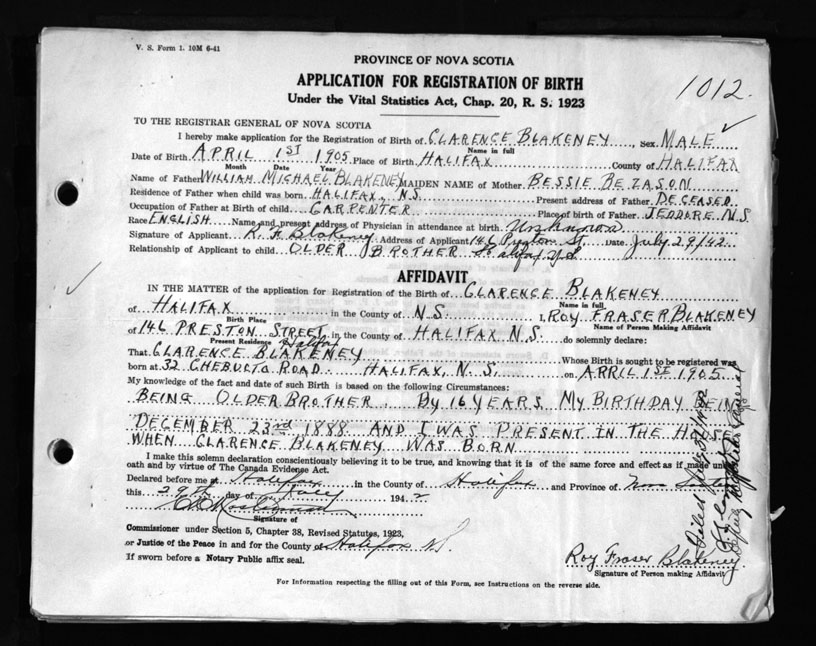 V. S. Form 1. 10M 6-41
PROVINCE OF NOVA SCOTIA
APPLICATION FOR REGISTRATION OF BIRTH
1012.
Under the Vital Statistics Act, Chap. 20, R. S. 1923
TO THE REGISTRAR GENERAL OF NOVA SCOTIA
I hereby make application for the Registration of Birth of CLARENCE BLAKENEY Sex MALE
Name in full
Date of Birth APRIL 1ST 1905 Place of Birth HALIFAX County of HALIFAX
Month Date Year
Name of Father WILLIAM MICHAEL BLAKENEY MAIDEN NAME of Mother BESSIE BEZASON
Residence of Father when child was born HALIFAX, N.S. Present address of Father DECEASED
Occupation of Father at Birth of child CARPENTER Place of birth of Father JEDDORE N.S
Race ENGLISH Name and present address of Physician in attendance at birth Unknown
Signature of Applicant R. F. Blakeney Address of Applicant 146 Preston St. Date July 29/42
Relationship of Applicant to child OLDER BROTHER Halifax N.S.
AFFIDAVIT
IN THE MATTER of the application for Registration of the Birth of CLARENCE BLAKENEY
Name in full
of HALIFAX in the County of N.S. I, ROY FRASER BLAKENEY
Birth Place Name of Person Making Affidavit
of 146 PRESTON STREET in the County of HALIFAX N.S. do solemnly declare:
Present Residence Halifax
That CLARENCE BLAKENEY Whose Birth is sought to be registered was
born at 32 CHEBUCTO ROAD HALIFAX, N.S. on APRIL 1ST 1905
My knowledge of the fact and date of such Birth is based on the following Circumstances:
BEING OLDER BROTHER BY 16 YEARS MY BIRTHDAY BEING
DECEMBER 23rd 1888 AND I WAS PRESENT IN THE HOUSE
WHEN CLARENCE BLAKENEY WAS BORN
I make this solemn declaration conscientiously believing it to be true, and knowing that it is of the same force and effect as if made under
oath and by virtue of The Canada Evidence Act.
Declared before me at Halifax in the County of Halifax and Province of Nova Scotia
this 29th day of July 1942
Signature of
Commissioner under Section 5, Chapter 38, Revised Statutes, 1923,
or Justice of the Peace in and for the County of Halifax N.S.
If sworn before a Notary Public affix seal.
Roy Fraser Blakeney
Signature of Person making Affidavit
For Information respecting the filling out of this Form, see Instructions on the reverse side.
Deputy Registrar General